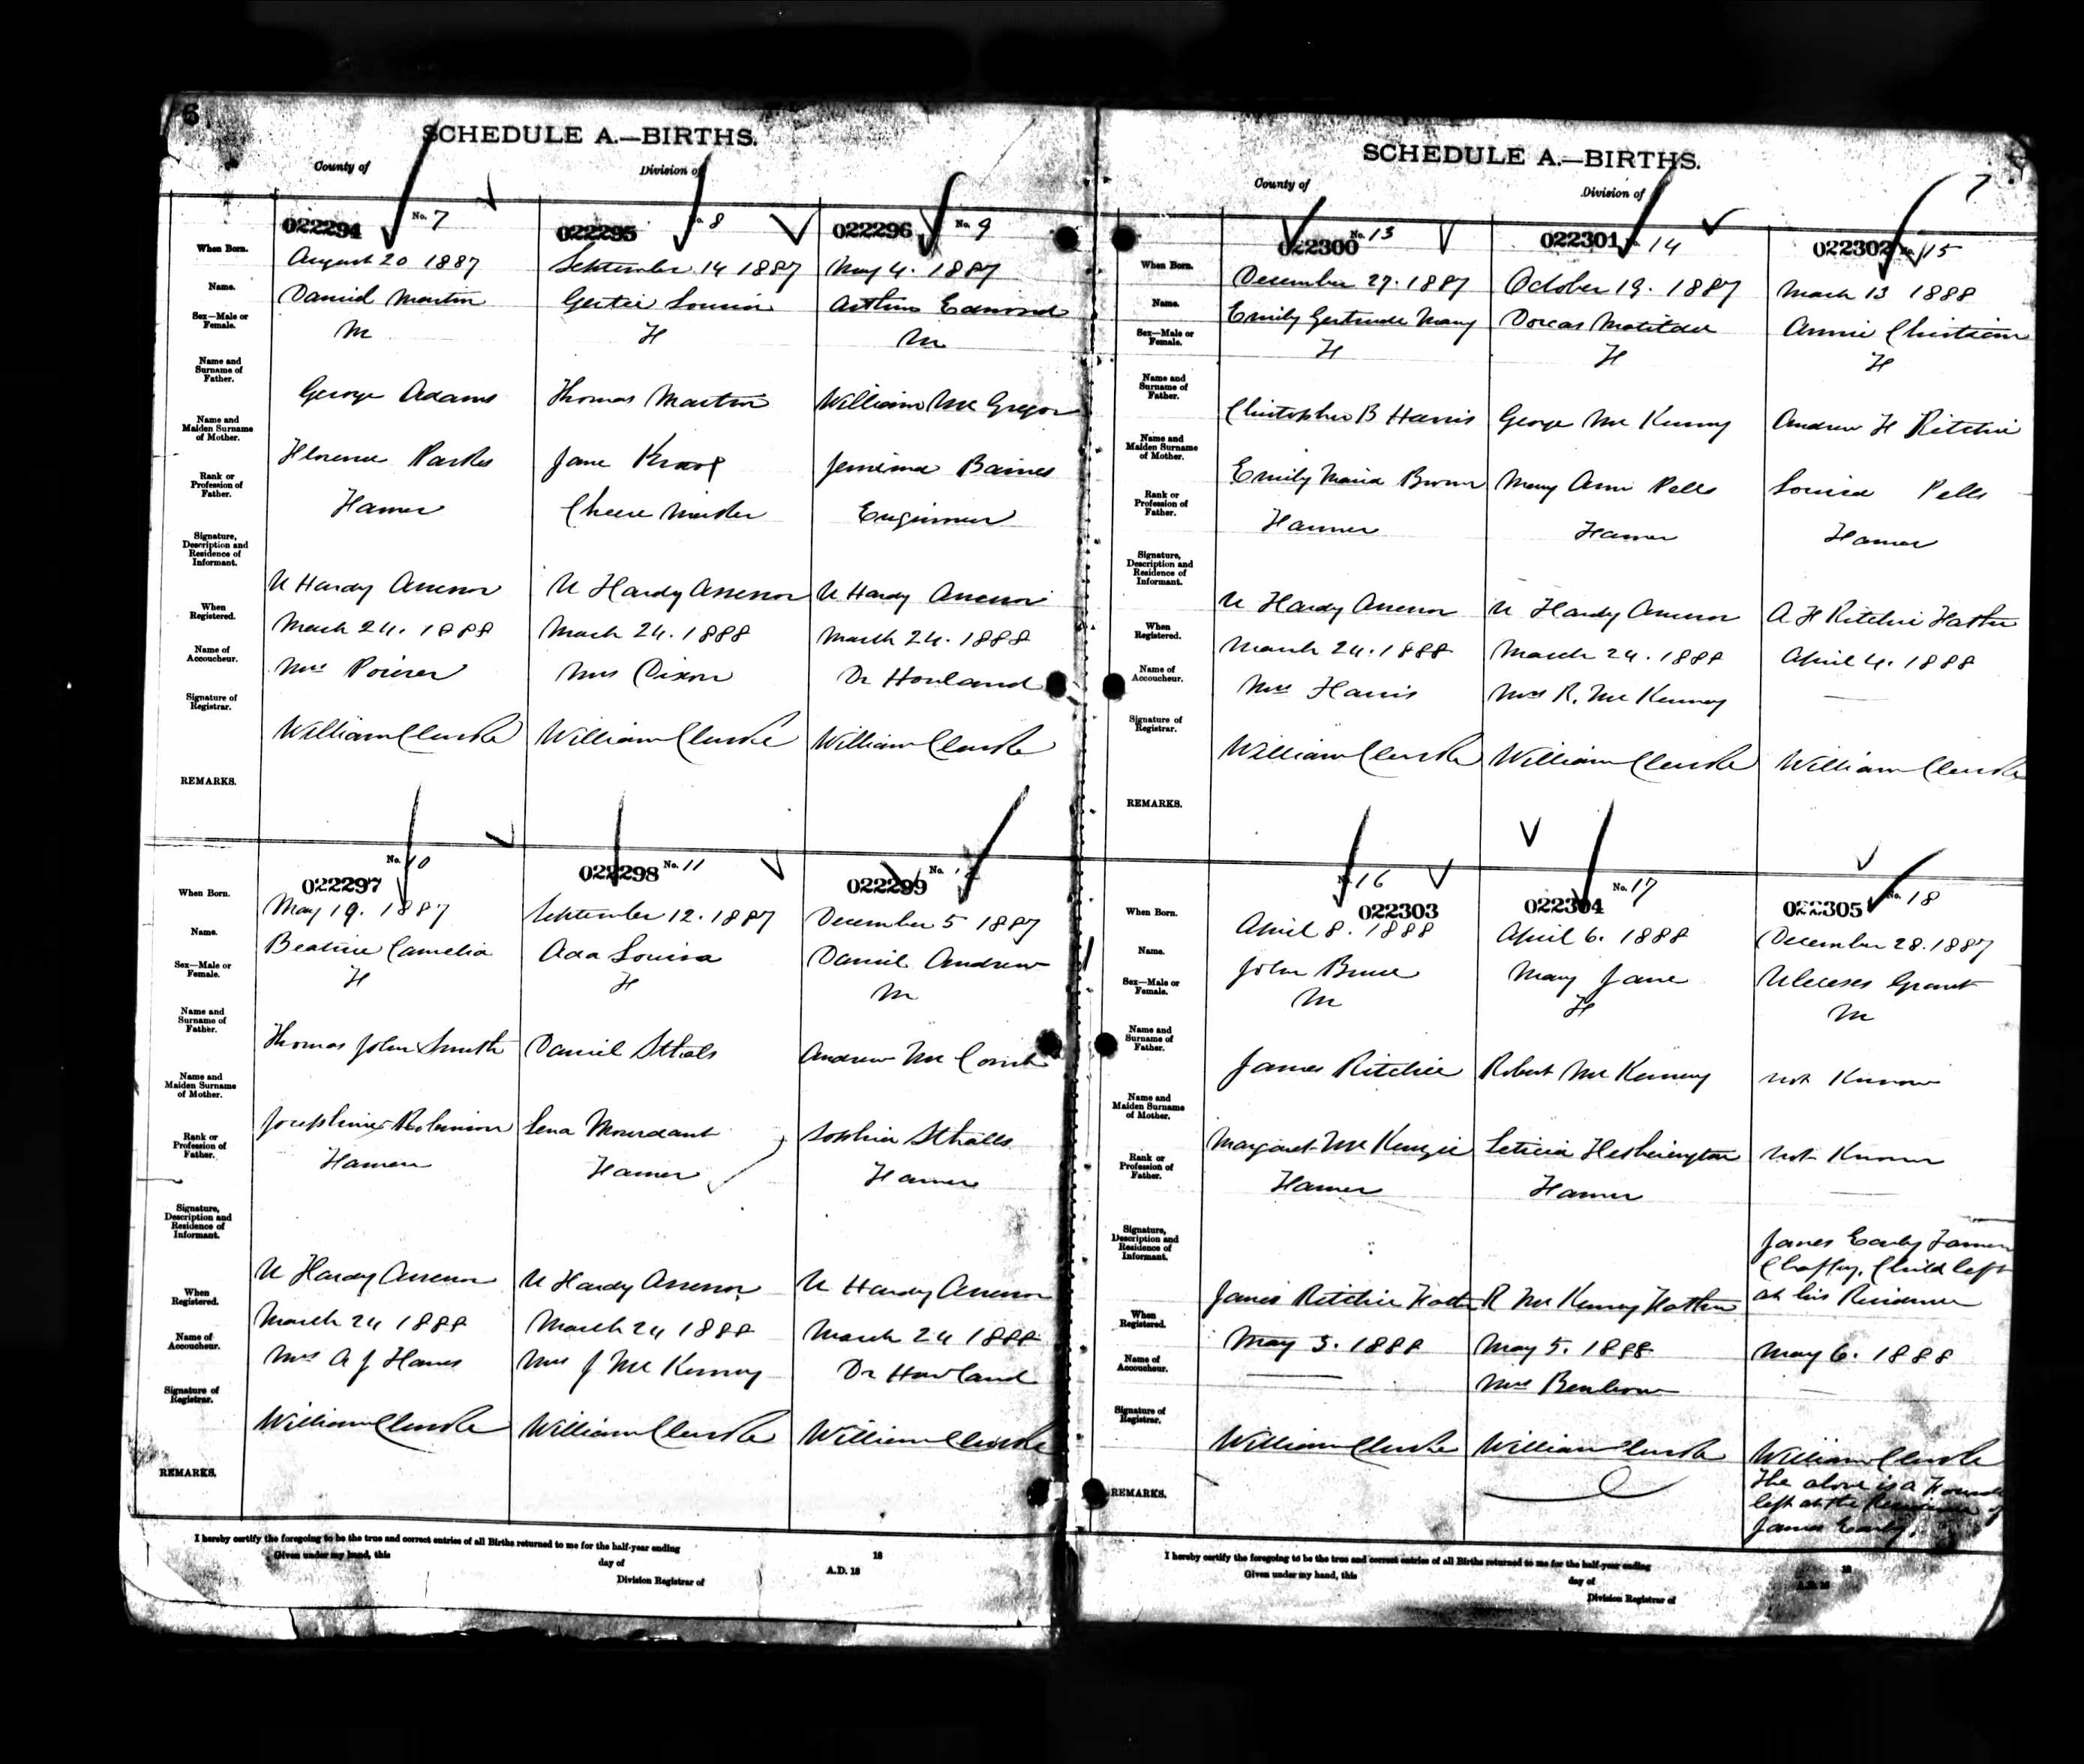 6
SCHEDULE A.—BIRTHS.
County of
Division of
022294 No. 7
022295 No. 8
022296 No. 9
When Born.
August 20 1887
September 14 1887
May 4. 1887
Name.
Daniel Martin
Gertie Louisa
Arthur Edmond
Sex—Male or Female.
M
F
M
Name and Surname of Father.
George Adams
Thomas Martin
William McGregor
Name and Maiden Surname of Mother.
Florence Parkes
Jane
Jemima Baines
Rank or Profession of Father.
Farmer
Cheese Maker
Engineer
Signature, Description and Residence of Informant.
U Hardy Assessor
U Hardy Assessor
U Hardy Assessor
When Registered.
March 24. 1888
March 24. 1888
March 24. 1888
Name of Accoucheur.
Mrs
Mrs Dixon
Dr Howland
Signature of Registrar.
William Clarke
William Clarke
William Clarke
REMARKS.
No. 10
022297
022298 No. 11
022299 No. 12
When Born.
May 19. 1887
September 12. 1887
December 5 1887
Name.
Beatrice Camelia
Ada Louisa
Daniel Andrew
Sex—Male or Female.
F
F
M
Name and Surname of Father.
Thomas John Smith
Daniel Sthals
Andrew McComb
Name and Maiden Surname of Mother.
Josephine Robinson
Lena Mourdant
Sophia Sthalls
Rank or Profession of Father.
Farmer
Farmer
Farmer
Signature, Description and Residence of Informant.
U Hardy Assessor
U Hardy Assessor
U Hardy Assessor
When Registered.
March 24 1888
March 24 1888
March 24 1888
Name of Accoucheur.
Mrs A J
Mrs J McKenney
Dr Howland
Signature of Registrar.
William Clarke
William Clarke
William Clarke
REMARKS.
I hereby certify the foregoing to be the true and correct entries of all Births returned to me for the half-year ending 18
Given under my hand, this day of A.D. 18
Division Registrar of
7
SCHEDULE A.—BIRTHS.
County of
Division of
022300 No. 13
022301 No. 14
022302 No. 15
When Born.
December 27. 1887
October 19. 1887
March 13 1888
Name.
Emily Gertrude Mary
Dorcas Matilda
Annie Christian
Sex—Male or Female.
F
F
F
Name and Surname of Father.
Christopher B Harris
George McKenney
Andrew F Ritchie
Name and Maiden Surname of Mother.
Emily Maria Brown
Mary Ann Pells
Louisa Pells
Rank or Profession of Father.
Farmer
Farmer
Farmer
Signature, Description and Residence of Informant.
U Hardy Assessor
U Hardy Assessor
A F Ritchie Father
When Registered.
March 24. 1888
March 24. 1888
April 4. 1888
Name of Accoucheur.
Mrs Harris
Mrs R. McKenney
Signature of Registrar.
William Clarke
William Clarke
William Clarke
REMARKS.
No. 16
022303
022304 No. 17
022305 No. 18
When Born.
April 8. 1888
April 6. 1888
December 28. 1887
Name.
John Bruce
Mary Jane
Uleceses Grant
Sex—Male or Female.
M
F
M
Name and Surname of Father.
James Ritchie
Robert McKenney
not Known
Name and Maiden Surname of Mother.
Margaret McKenzie
Leticia Hetherington
not Known
Rank or Profession of Father.
Farmer
Farmer
Signature, Description and Residence of Informant.
James Ritchie Father
R McKenney Father
James Early Farmer
Chaffey. Child left
at his Residence
When Registered.
May 3. 1888
May 5. 1888
May 6. 1888
Name of Accoucheur.
Mrs Benbow
Signature of Registrar.
William Clarke
William Clarke
William Clarke
REMARKS.
The above is a
left at the Residence of
James Early.
I hereby certify the foregoing to be the true and correct entries of all Births returned to me for the half-year ending 18
Given under my hand, this day of A.D. 18
Division Registrar of